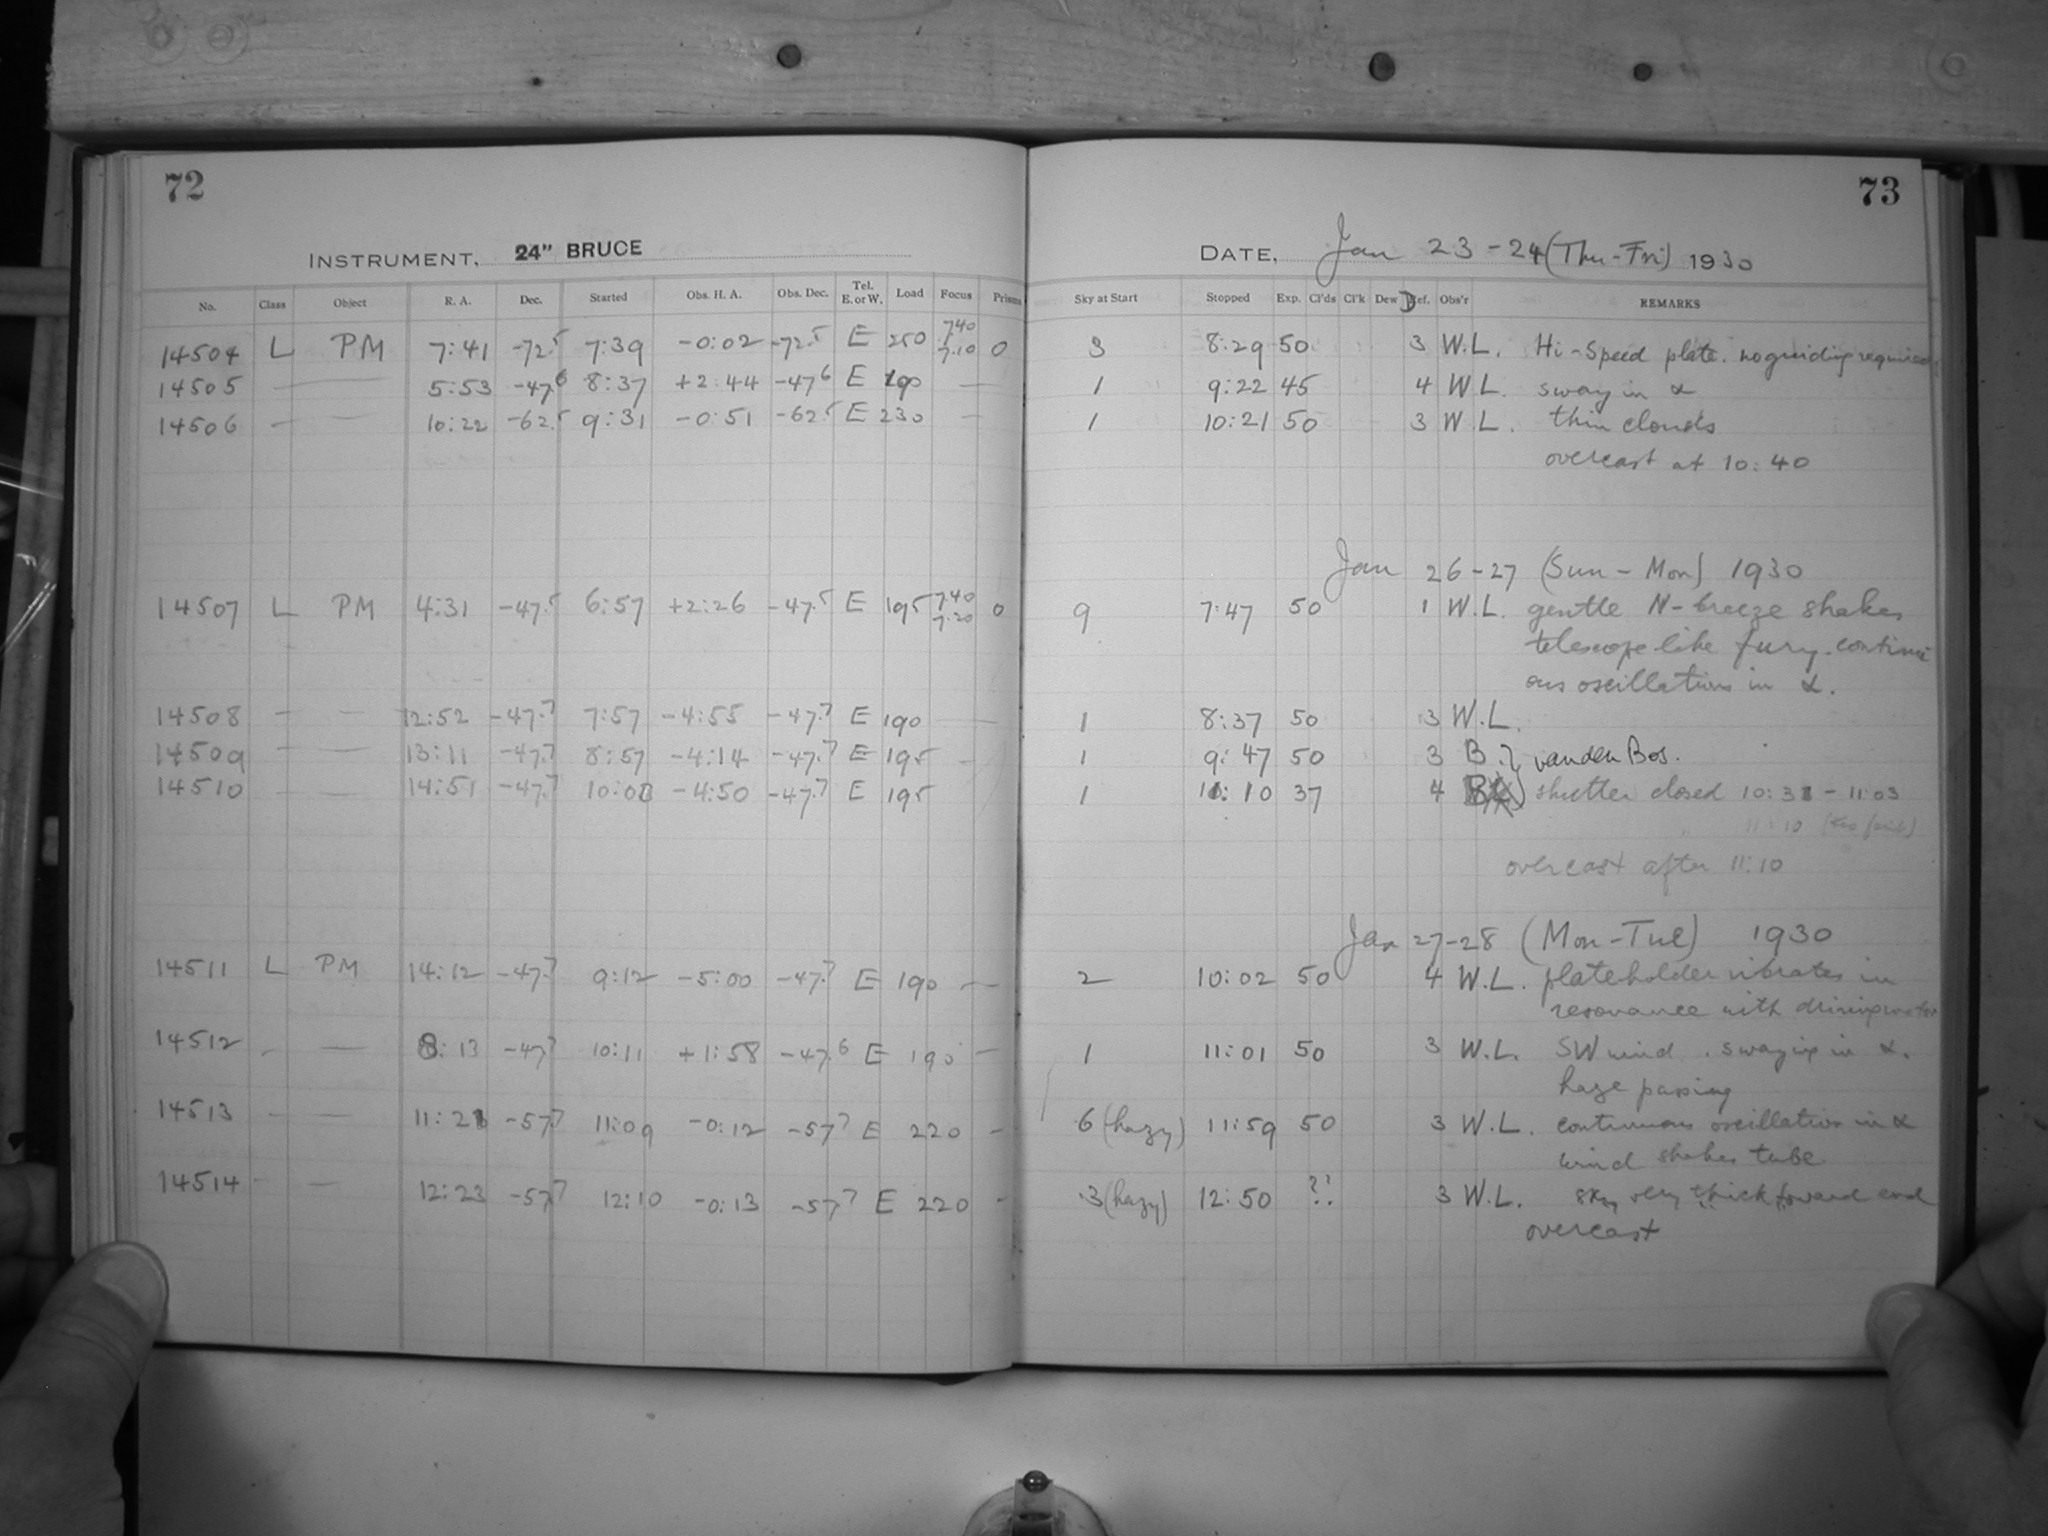 72
INSTRUMENT, 24" BRUCE
No. Class Object R. A. Dec. Started Obs. H. A. Obs. Dec. Tel. E. or W. Load Focus Prisms
14504 L PM 7:41 -72.5 7:39 -0:02 -72.5 E 250 7.40 7.10 0
14505 — — 5:53 -47.6 8:37 +2:44 -47.6 E 190 —
14506 — — 10:22 -62.5 9:31 -0:51 -62.5 E 230 —
14507 L PM 4:31 -47.5 6:57 +2:26 -47.5 E 195 7.40 7.20 0
14508 — — 12:52 -47.7 7:57 -4:55 -47.7 E 190 —
14509 — — 13:11 -47.7 8:57 -4:14 -47.7 E 195 —
14510 — — 14:51 -47.7 -4:50 -47.7 E 195
14511 L PM 14:12 -47.7 9:12 -5:00 -47.7 E 190 —
14512 - — 8:13 -47.7 10:11 +1:58 -47.6 E 190 —
14513 - — 11:21 -57.7 11:09 -0:12 -57.7 E 220 -
14514 - — 12:23 -57.7 12:10 -0:13 -57.7 E 220 -
73
DATE, Jan 23-24 (Thu-Fri) 1930
Sky at Start Stopped Exp. Cl'ds Cl'k Dew Def. Obs'r REMARKS
3 8:29 50 3 W.L. Hi-Speed plate. no guiding required.
1 9:22 45 4 W.L. sway in α
1 10:21 50 3 W.L. thin clouds
overcast at 10:40
Jan 26-27 (Sun-Mon) 1930
9 7:47 50 1 W.L. gentle N-breeze shakes
telescope like fury. continu
ous oscillations in α.
1 8:37 50 3 W.L.
1 9:47 50 3 B. } van den Bos.
1 11:10 37 4 } shutter closed 10:31 - 11:03
" 11:10
overcast after 11:10
Jan 27-28 (Mon-Tue) 1930
2 10:02 50 4 W.L. plateholder vibrates in
resonance with driving motor
1 11:01 50 3 W.L. SW wind. swaying in α.
haze passing
6 (hazy) 11:59 50 3 W.L. continuous oscillation in α
wind shakes tube
3 (hazy) 12:50 ?? 3 W.L. sky very thick toward end
overcast